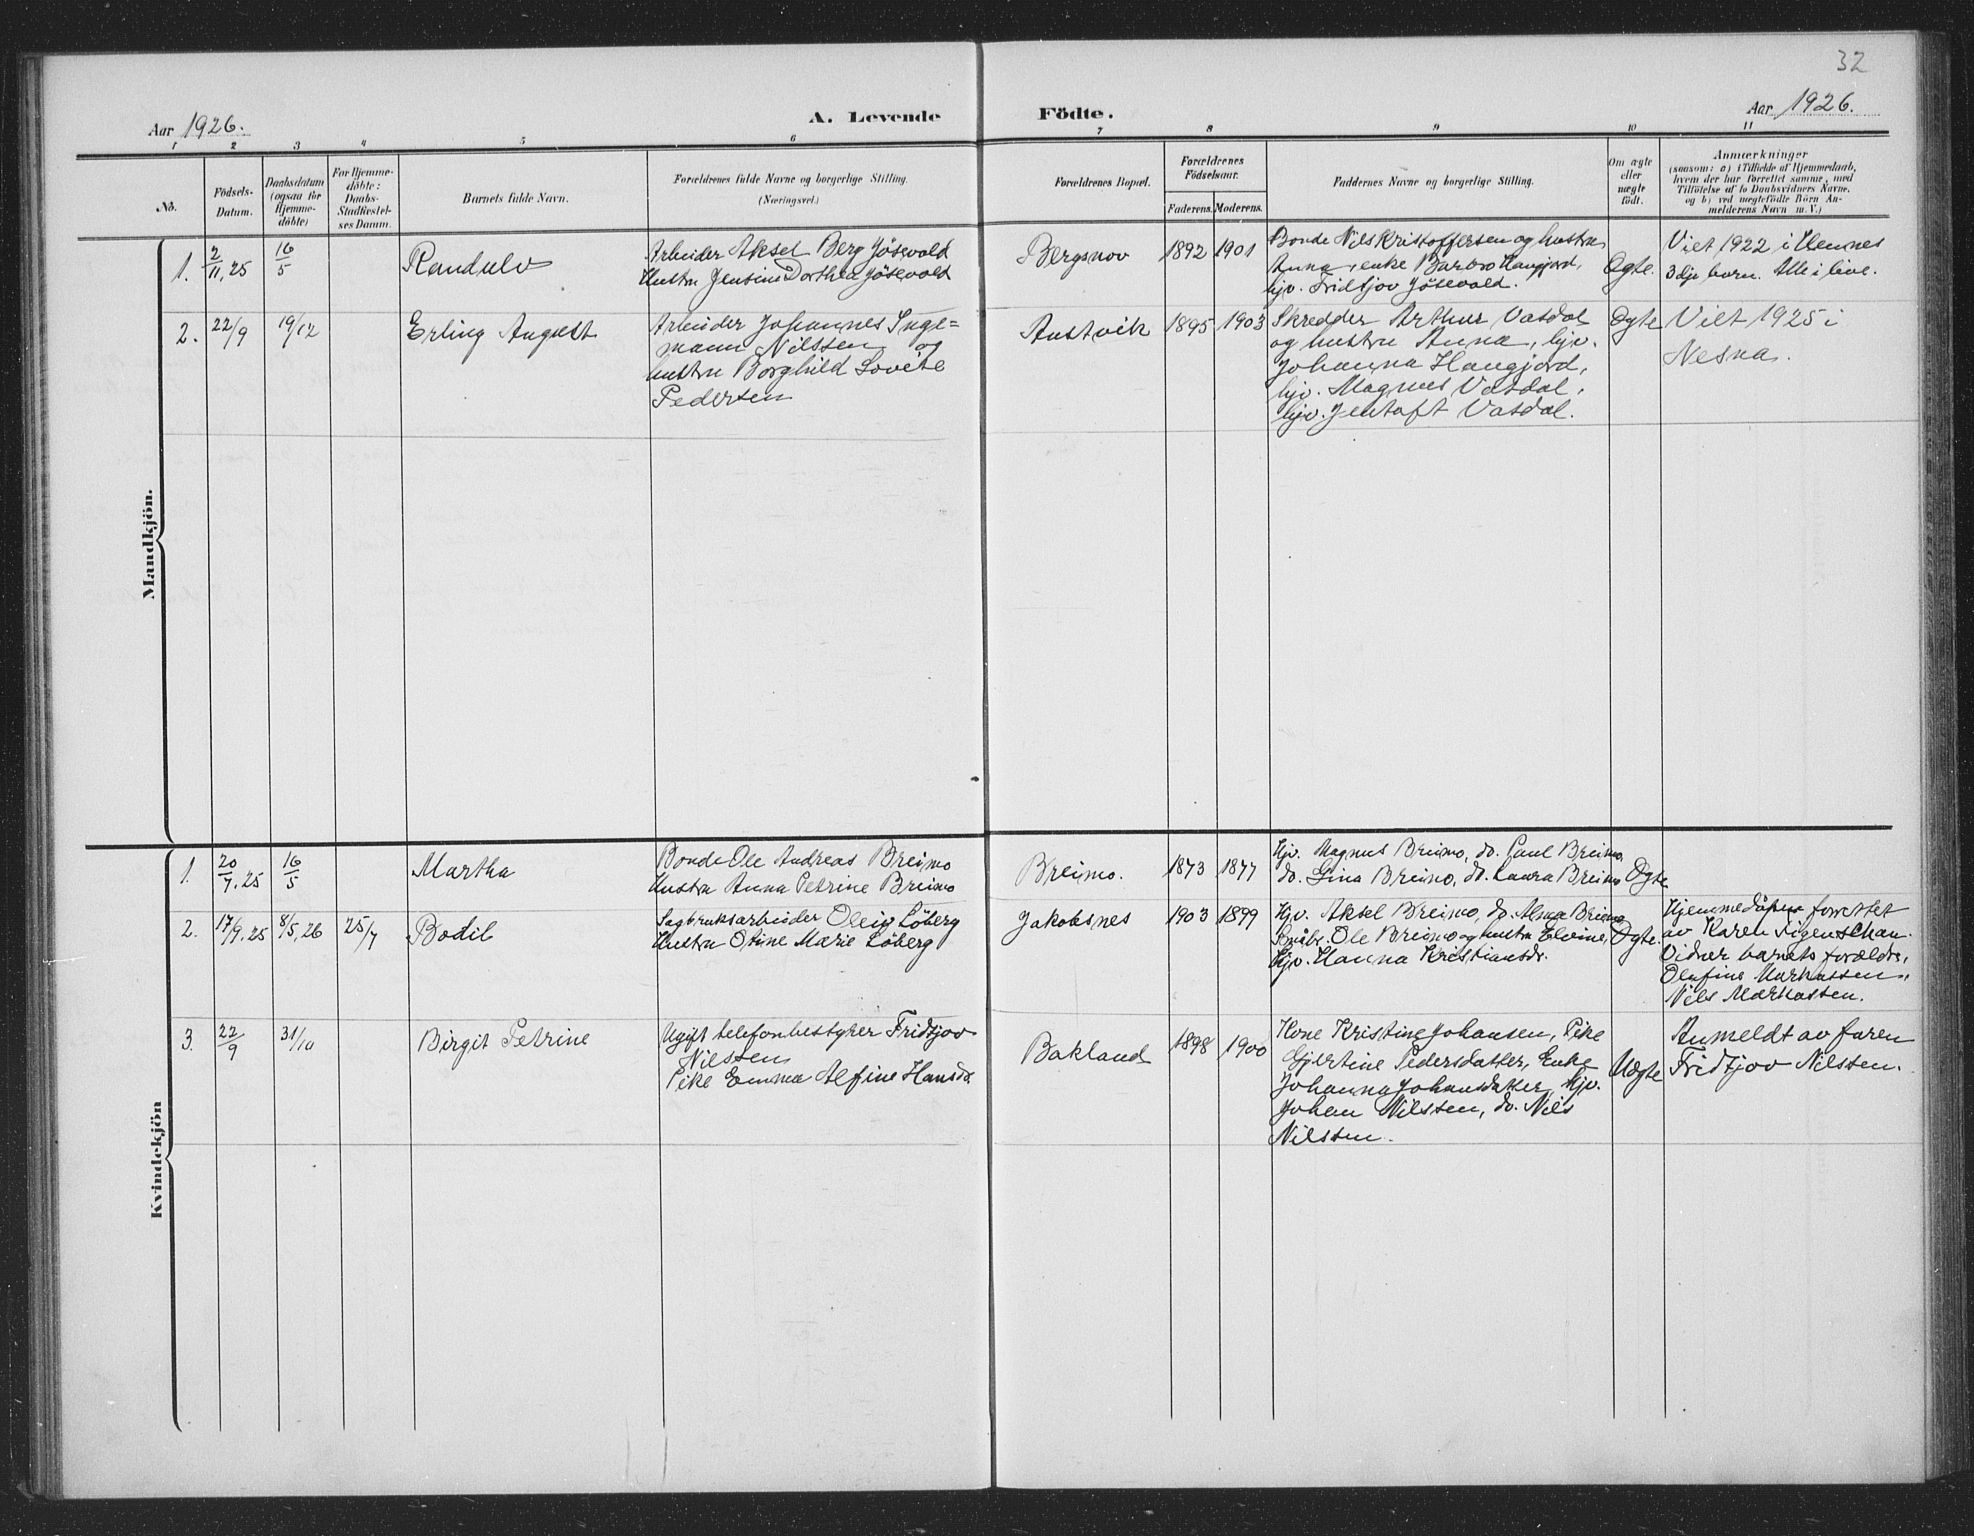 32
Aar 1926.
A. Levende
Födte.
Aar 1926.
1 2 3 4 5 6 7 8 9 10 11
No.
Födsels-
Datum.
Daabsdatum
(ogsaa for
Hjemme-
döbte)
For Hjemme-
döbte:
Daabs-
Stadfæstel-
ses Datum.
Barnets fulde Navn.
Forældrenes fulde Navne og borgerlige Stilling.
(Næringsvei.)
Forældrenes Bopæl.
Forældrenes
Födselsaar.
Faderens. Moderens.
Faddernes Navne og borgerlige Stilling.
Om ægte
eller
uægte
födt.
Anmærkninger
(saasom: a) i Tilfælde af Hjemmedaab,
hvem der har forrettet samme, med
Tilföielse af to Daabsvidners Navne,
og b) ved uægtefödte Börn An-
melderens Navn m. V.)
Mandkjön.
1.
2/11,25
16/5
Randulv
Arbeider Aksel Berg Jösevold
Hustru Jensine Dorthea Jösevold
Bergsnov
1892
1901
Bonde Nils Kristoffersen og hustru
Anna, enke Barbro Haugjord,
hjv. Fridtjov Jösevold.
Ægte.
Viet 1922 i Hemnes
3dje barn. Alle i live.
2.
22/9
19/12
Erling August
Arbeider Johannes Inge=
mann Nilssen og
hustru Borghild Lovise
Pedersen
Austvik
1895
1903
Skredder Arthur Vasdal
og hustru Anna, hjv.
Johanna Haugjord,
hjv. Magnus Vasdal,
hjv. Jentoft Vasdal.
Ægte
Viet 1925 i
Nesna.
Kvindekjön
1.
20/7.25
16/5
Martha
Bonde Ole Andreas Breimo
Hustru Anna Petrine Breimo
Breimo.
1873
1877
Hjv. Magnus Breimo, do. Paul Breimo,
do. Gina Breimo, do. Laura Breimo
Ægte
2.
17/9.25
8/5,26
25/7
Bodil
Sagbruksarbeider Oleiv Löberg
Hustru Otine Marie Löberg
Jakobsnes
1903
1899
Hjv. Aksel Breimo, do. Alma Breimo
Småbr. Ole Breimo og hustru Elvine,
Hjv. Hanna Kristiansdr.
Ægte.
Hjemmedåpen forrettet
av Karen Figenschau.
Vidner barnets forældre,
Olufine Markussen,
Nils Markussen.
3.
22/9
31/10
Birgit Petrine
Ugift telefonbestyrer Fridtjov
Nilssen
Pike Emma Alfine Hansdr.
Bakland
1898
1900
Kone Kristine Johansen, Pike
Gjertine Pedersdatter, Enke
Johanna Johansdatter, Hjv.
Johan Nilssen, do. Nils
Nilssen.
Uægte
Anmeldt av faren
Fridtjov Nilssen.